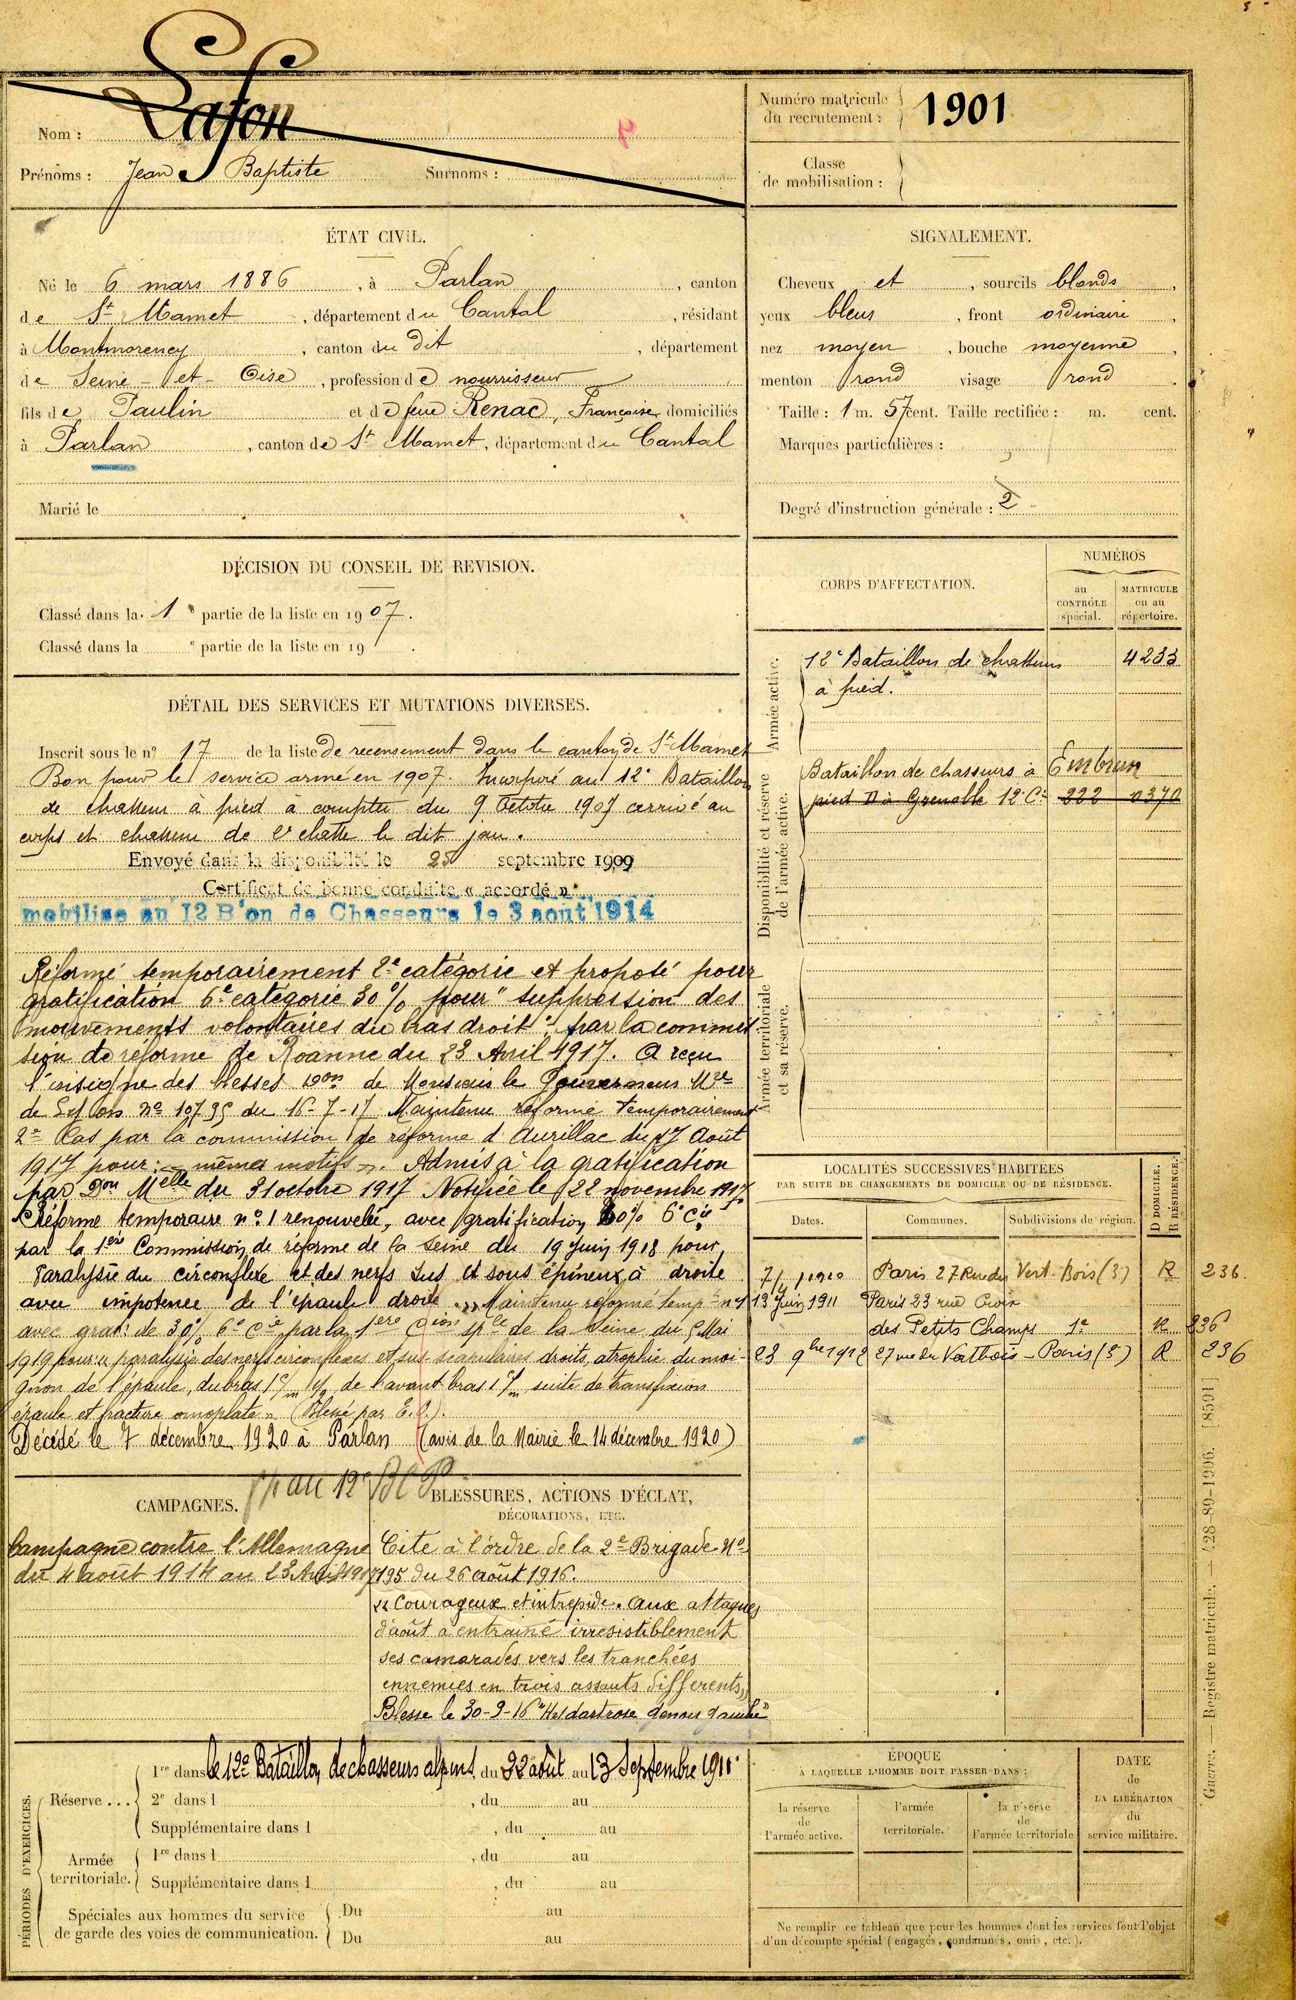 Nom : Lafon
Prénoms : Jean Baptiste Surnoms :
Numéro matricule du recrutement : 1901
Classe de mobilisation :
ÉTAT CIVIL.
Né le 6 mars 1886, à Parlan, canton
de St Mamet, département du Cantal, résidant
à Montmorency, canton du dit, département
de Seine-et-Oise, profession de nourrisseur
fils de Paulin et de feue Renac, Françoise domiciliés
à Parlan, canton de St Mamet, département du Cantal
Marié le
SIGNALEMENT.
Cheveux et, sourcils blonds,
yeux bleus, front ordinaire,
nez moyen, bouche moyenne,
menton rond visage rond.
Taille : 1 m. 57 cent. Taille rectifiée : m. cent.
Marques particulières :
Degré d'instruction générale : 2
DÉCISION DU CONSEIL DE REVISION.
Classé dans la 1e partie de la liste en 1907.
Classé dans la e partie de la liste en 19 .
DÉTAIL DES SERVICES ET MUTATIONS DIVERSES.
Inscrit sous le no 17 de la liste de recensement dans le canton de St Mamet
Bon pour le service armé en 1907. Incorporé au 12e Bataillon
de chasseurs à pied à compter du 9 Octobre 1907 arrivé au
corps et chasseur de 2e classe le dit jour.
Envoyé dans la disponibilité le 25 septembre 1909
Certificat de bonne conduite « accordé »
mobilise au 12 B'on de Chasseurs le 3 aout 1914
Réformé temporairement 2e catégorie et proposé pour
gratification 6e catégorie 30% pour "suppression des
mouvements volontaires du bras droit", par la commis
sion de réforme de Roanne du 23 Avril 1917. A reçu
l'insigne des blessés de Monsieur le Gouverneur Mre
de Lyon no 10735 du 16-7-17 Maintenu réformé temporairement
2e Cas par la commission de réforme d'Aurillac du 17 Août
1917 pour : "mêmes motifs". Admis à la gratification
par Don Melle du 31 octobre 1917 Notifiée le 22 novembre 1917
Réforme temporaire no 1 renouvelée, avec gratification 30% 6e Cie
par la 1ère Commission de réforme de la Seine du 19 Juin 1918 pour,
Paralysie du circonflexe et des nerfs sus et sous épineux, à droite
avec impotence de l'épaule droite. Maintenu réformé tempre no 1
avec grat. de 30% 6e Cie par la 1ère Cion Sple de la Seine du 5 Mai
1919 pour : "paralysie des nerfs circonflexes et sus-scapulaires droits, atrophie du moi-
gnon de l'épaule, du bras 1 c/m ½ de l'avant bras 1 c/m, suite de transfixion
épaule et fracture omoplate". (Blessé par E. O.).
Décédé le 7 décembre 1920 à Parlan (avis de la Mairie le 14 décembre 1920)
CORPS D'AFFECTATION.
NUMÉROS
au CONTRÔLE spécial.
MATRICULE ou au répertoire.
Armée active.
12e Bataillon de chasseurs 4233
à pied.
Disponibilité et réserve de l'armée active.
Bataillon de chasseurs à Embrun
pied D à Grenoble 12e Cie 222 0370
Armée territoriale et sa réserve.
LOCALITÉS SUCCESSIVES HABITÉES
PAR SUITE DE CHANGEMENTS DE DOMICILE OU DE RÉSIDENCE.
Dates. Communes. Subdivisions de région.
D DOMICILE. R RÉSIDENCE.
1910 Paris 27 Rue du Vert-Bois (3) R 236
13 Juin 1911 Paris 23 rue Croix
des Petits Champs 1e R 236
23 9bre 1912 27 rue de Valois - Paris R 236
CAMPAGNES.
au 12e BCP
Campagne contre l'Allemagne
du 4 août 1914 au 23 Avril 1917
BLESSURES, ACTIONS D'ÉCLAT,
DÉCORATIONS, ETC.
Cité à l'ordre de la 2e Brigade No
195 du 26 août 1916.
"Courageux et intrépide. aux attaques
d'août a entrainé irresistiblement
ses camarades vers les tranchées
ennemies en trois assauts differents"
Blessé le 30-9-16 genou gauche"
PÉRIODES D'EXERCICES.
Réserve ...
1re dans le 12e Bataillon de chasseurs alpins du 22 août au 13 Septembre 1911
2e dans l , du au
Supplémentaire dans l , du au
Armée territoriale.
1re dans l , du au
Supplémentaire dans l , du au
Spéciales aux hommes du service
de garde des voies de communication.
Du au
Du au
ÉPOQUE
À LAQUELLE L'HOMME DOIT PASSER DANS :
la réserve de l'armée active.
l'armée territoriale.
la réserve de l'armée territoriale
DATE de LA LIBÉRATION du service militaire.
Ne remplir ce tableau que pour les hommes dont les services font l'objet
d'un décompte spécial (engagés, condamnés, omis, etc.).
Guerre. — Registre matricule. — 428-89-1906. [8591]